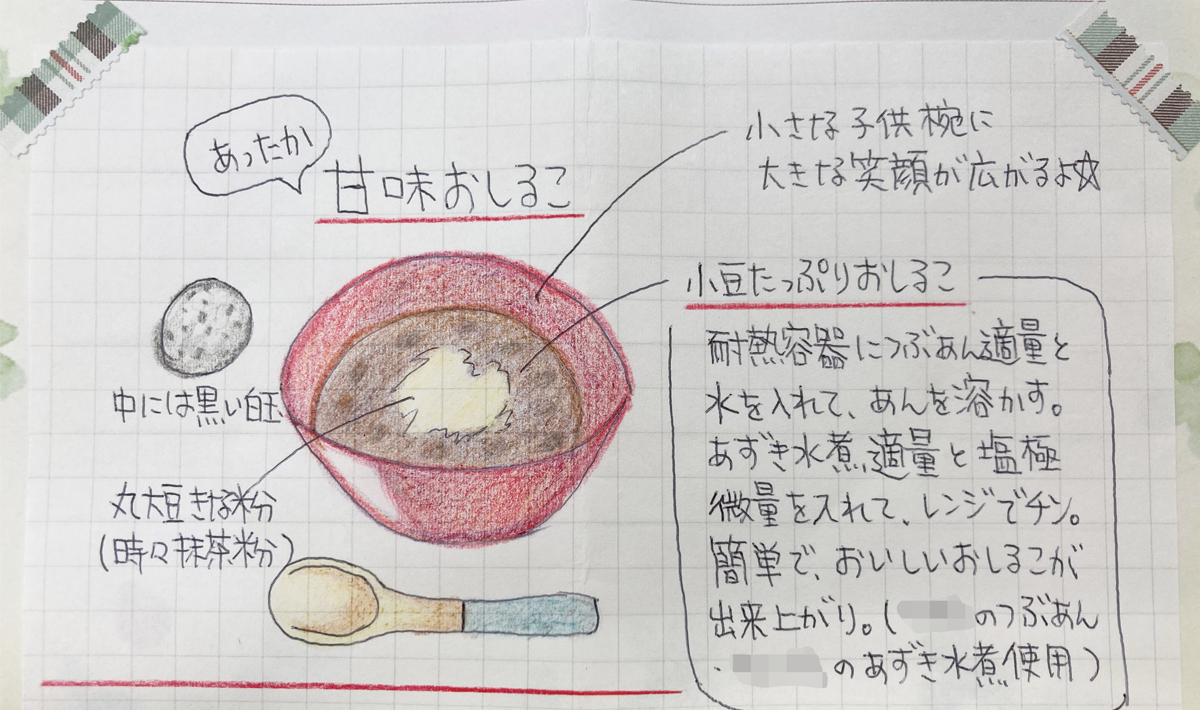 あったか
甘味おしるこ
小さな子供椀に
大きな笑顔が広がるよ☆
小豆たっぷりおしるこ
耐熱容器につぶあん適量と
水を入れて、あんを溶かす。
あずき水煮適量と塩極
微量を入れて、レンジでチン。
簡単で、おいしいおしるこが
出来上がり。( のつぶあん
・ のあずき水煮使用)
中には黒い白玉
丸大豆きな粉
(時々抹茶粉)